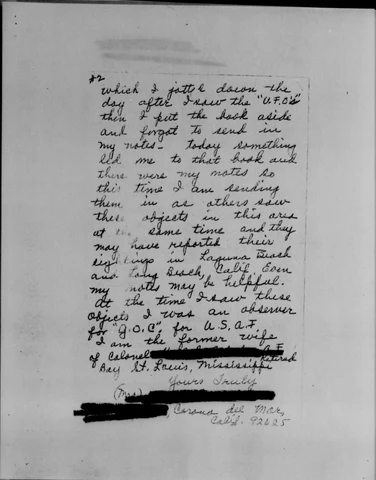 #2
which I jotted down the
day after I saw the "U.F.O's"
then I put the book aside
and forgot to send in
my notes - today something
led me to that book and
there were my notes so
this time I am sending
them in as others saw
these objects in this area
at the same time and they
may have reported their
sightings in Laguna Beach
and Long Beach, Calif. Even
my notes may be helpful.
At the time I saw these
objects I was an observer
for "G.O.C." for U.S.A.F.
I am the former wife
of Colonel A.F.
Retired
Bay St. Louis, Mississippi
Yours Truly
(Mrs)
, Corona del Mar,
Calif. 92625